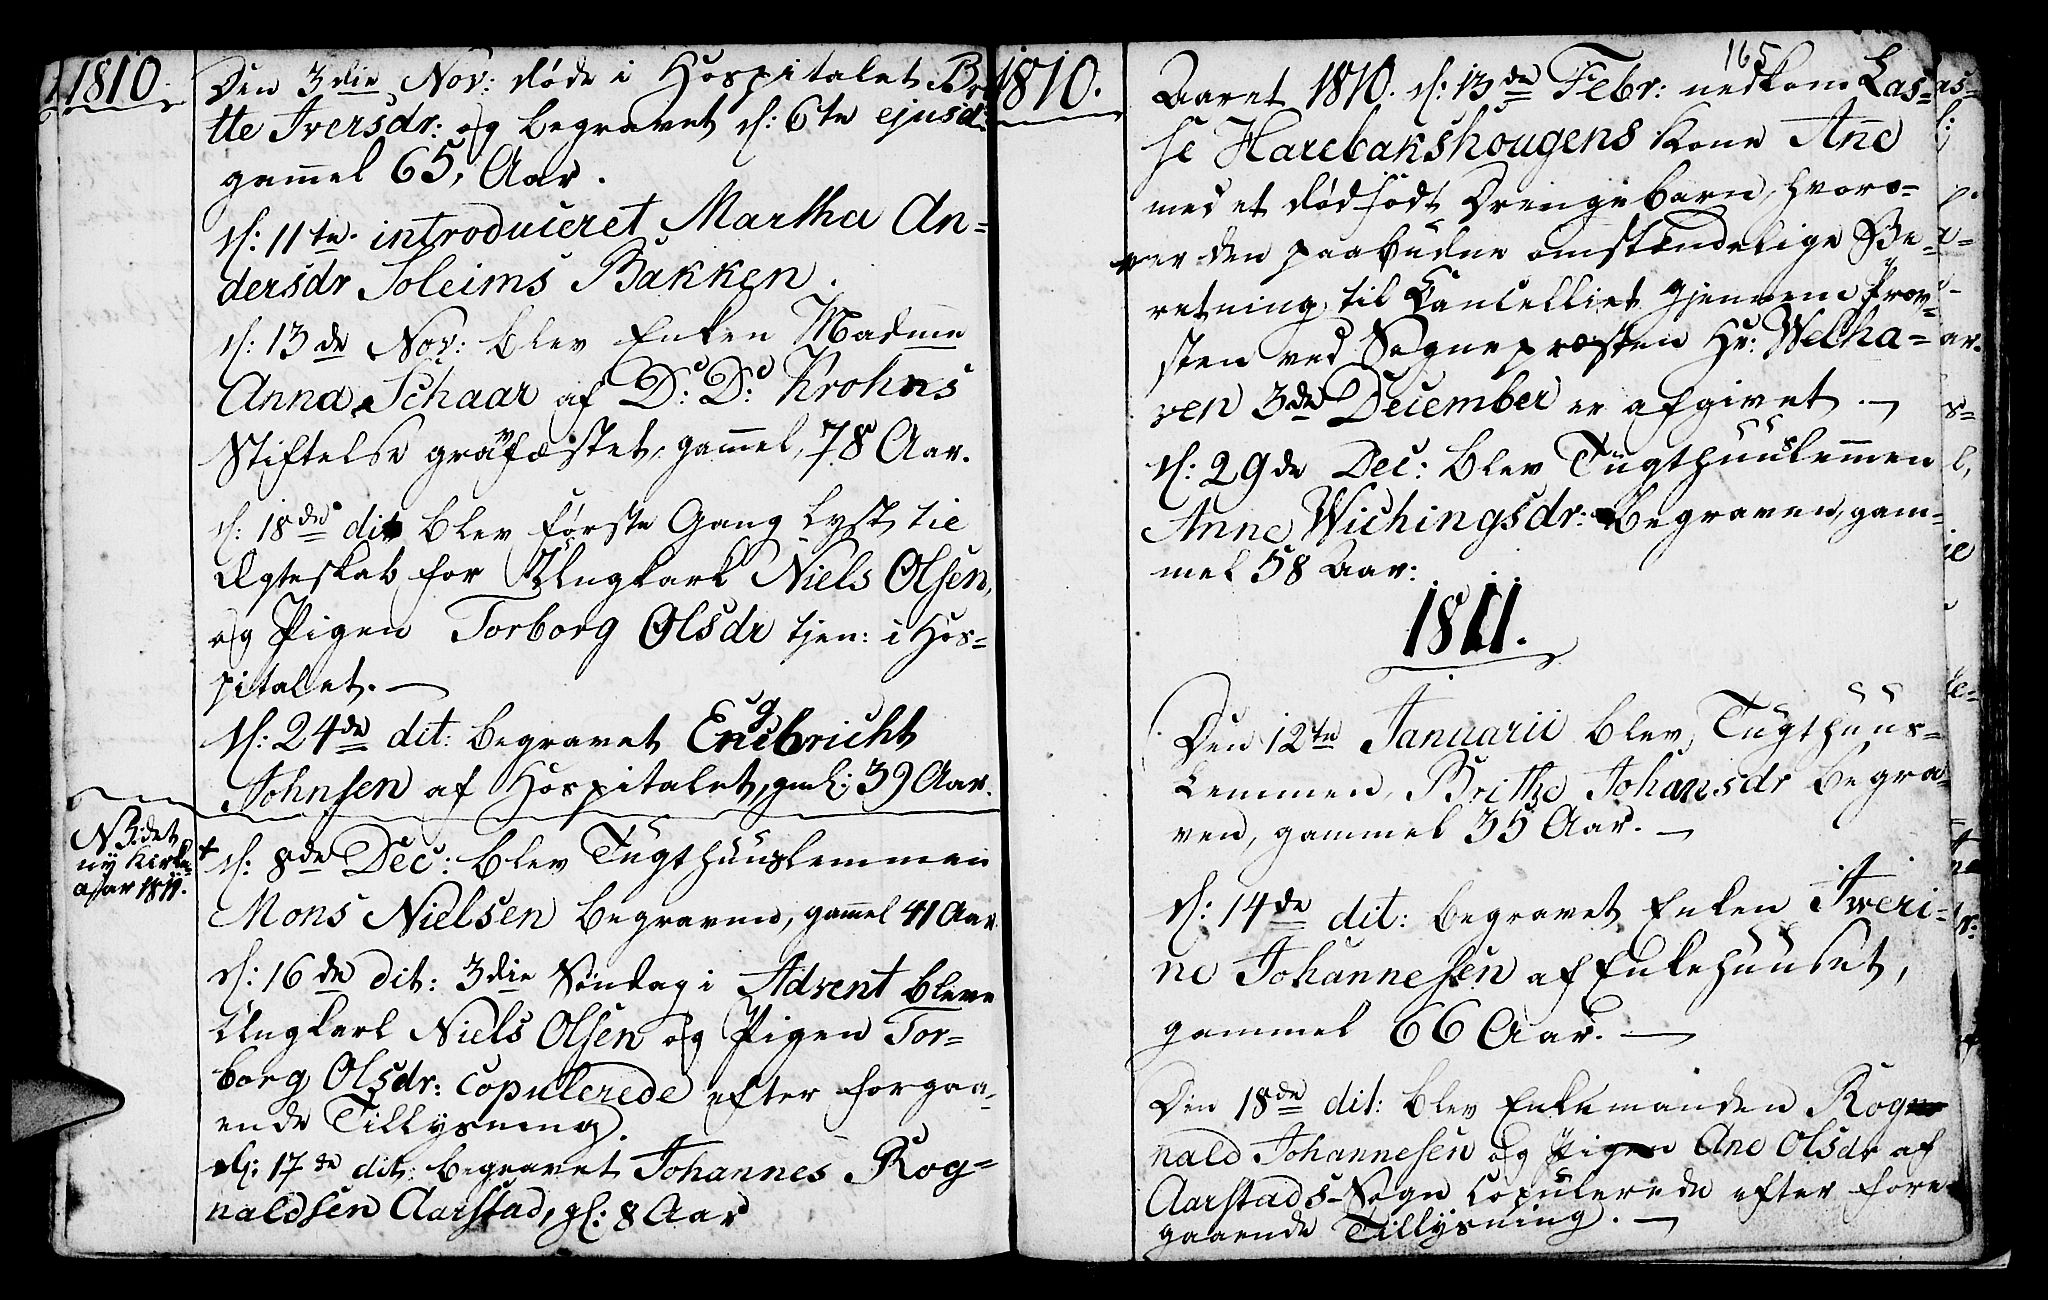 1810.
Den 3die Nov: døde i Hospitalet Bri-
tte Iversdr: og begravet d: 6te ejusd:
gam̄el 65, Aar.
d: 11te. introduceret Martha An=
dersdr Soleims Bakken.
d: 13de Nov: blev Enken Madme
Anna Schaar af D: D: Krohns
Stiftelse gravfæstet, gam̄el, 78 Aar.
d: 18de dit blev første Gang lyst til
Ægteskab for Ungkarl Niels Olsen,
og Pigen Torborg Olsdr tjen: i Hos=
pitalet.
d: 24de dit: begravet Engebricht
Johnsen af Hospitalet, gml: 39 Aar.
NB: det
ny Kirke-
aar 1811.
+ d: 8de Dec: blev Tugthuuslemmen
Mons Nielsen begraven, gam̄el 41 Aar
d: 16de dit: 3die Søndag i Advent bleve
Ungkarl Niels Olsen og Pigen Tor=
borg Olsdr: copulerede efter forgaa-
ende Tillysning.
d: 17de dit: begravet Johannes Rog=
naldsen Aarstad, gl: 8 Aar
1810.
165
Aaret 1810. d: 13de Febr: nedkom Las=
se Harebakshougens Kone Ane
med et dødfødt Drengebarn, hvoro=
ver den paabudne omstændelige Be=
retning til Cancelliet gjennem Prov=
sten ved Sognepræsten Hr: Welha=
ven 3de December er afgivet.
d: 29de Dec: blev Tugthuuslem̄en
Anne Wichingsdr: begraven, gam=
mel 58 Aar:
1811.
Den 12te Januarii blev Tugthuus=
Lemmen, Brithe Johansdr begra=
ven, gammel 35 Aar.
d: 14de dit: begravet Enken Iweri=
ne Johannesen af Enkehuuset,
gammel 66 Aar.
Den 18de dit: blev Enkemanden Rog
nald Johannesen og Pigen Ane Olsdr af
Aarstads-Sogn Copulerede efter fore-
gaaende Tillysning.